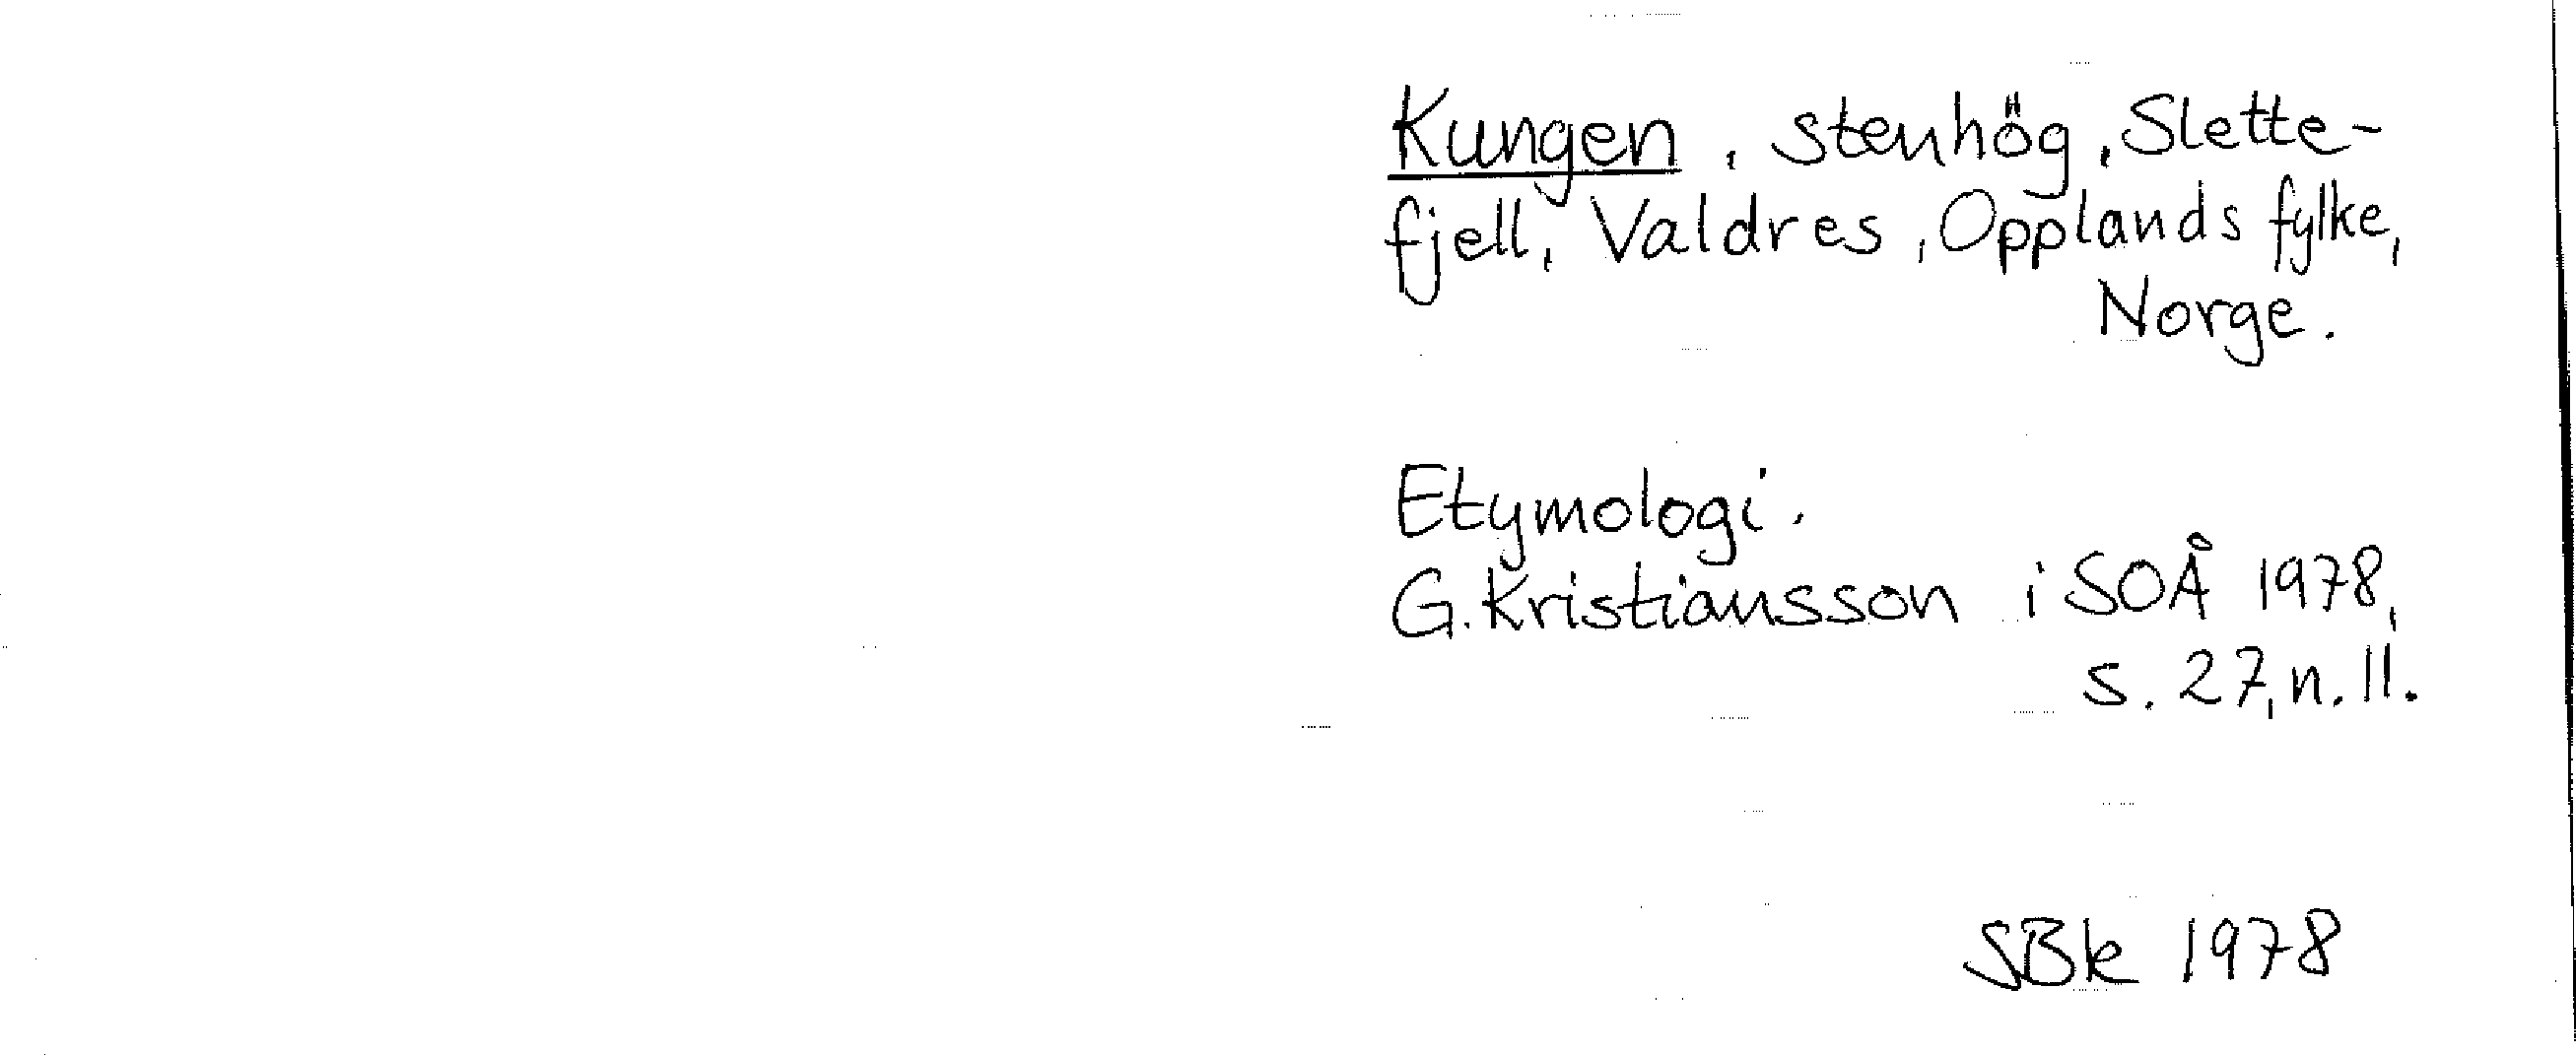 Kungen, stenhög, Slette-
fjell, Valdres, Opplands fylke,
Norge.
Etymologi.
G. Kristiansson i SOÅ 1978,
s. 27, n. 11.
SBk 1978